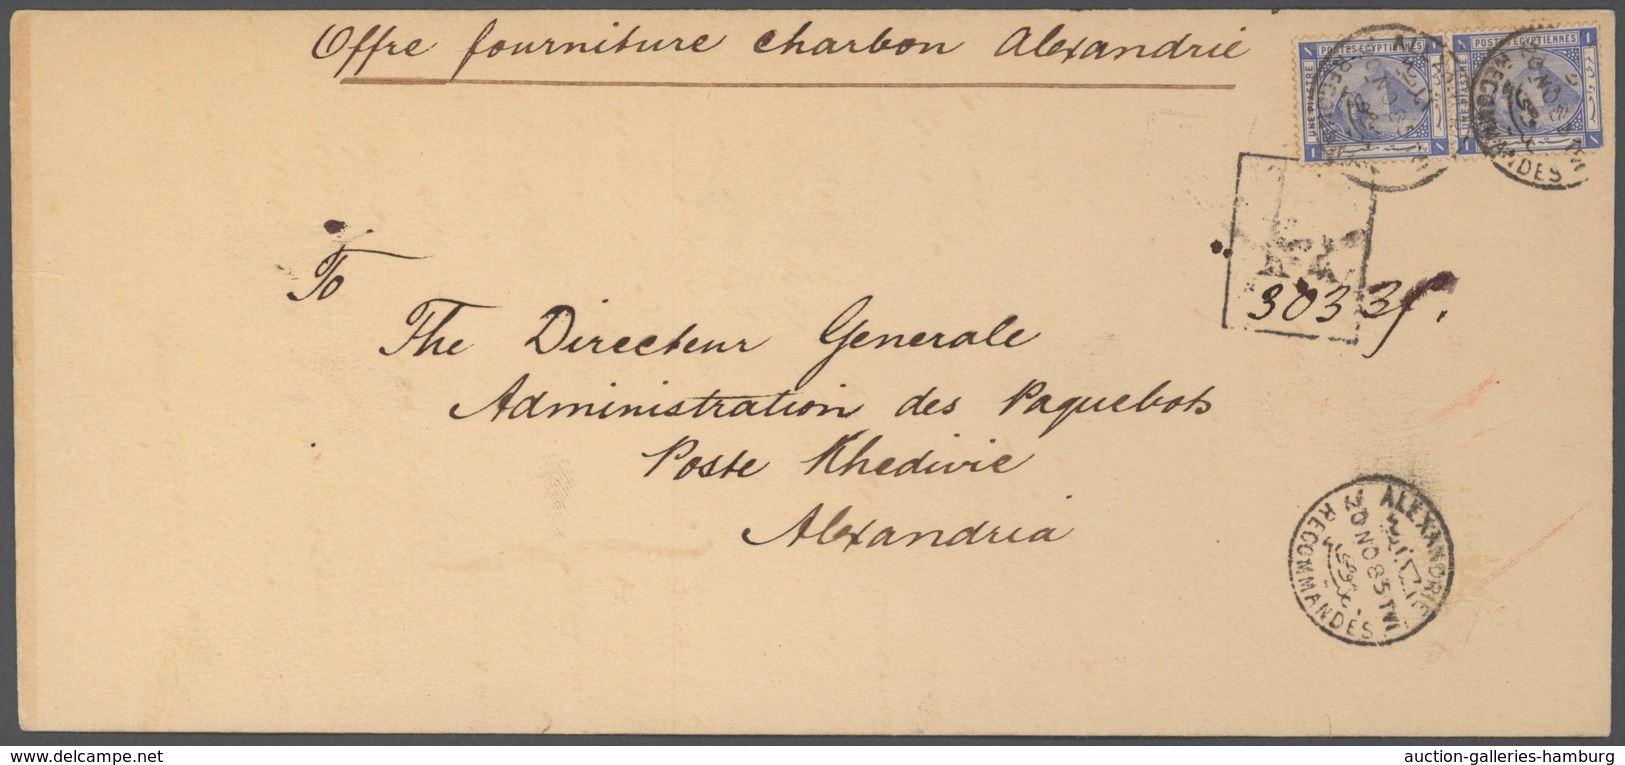 Offre fourniture charbon Alexandrie
POSTES EGYPTIENNES
UNE PIASTRE
1
1
POSTES EGYPTIENNES
UNE PIASTRE
1
1
RECOMMANDES
To
3033
The Directeur Generale
Administration des Paquebots
Poste Khedivie
Alexandria
ALEXANDRIE
20 NO 85
RECOMMANDES
auction-galleries-hamburg